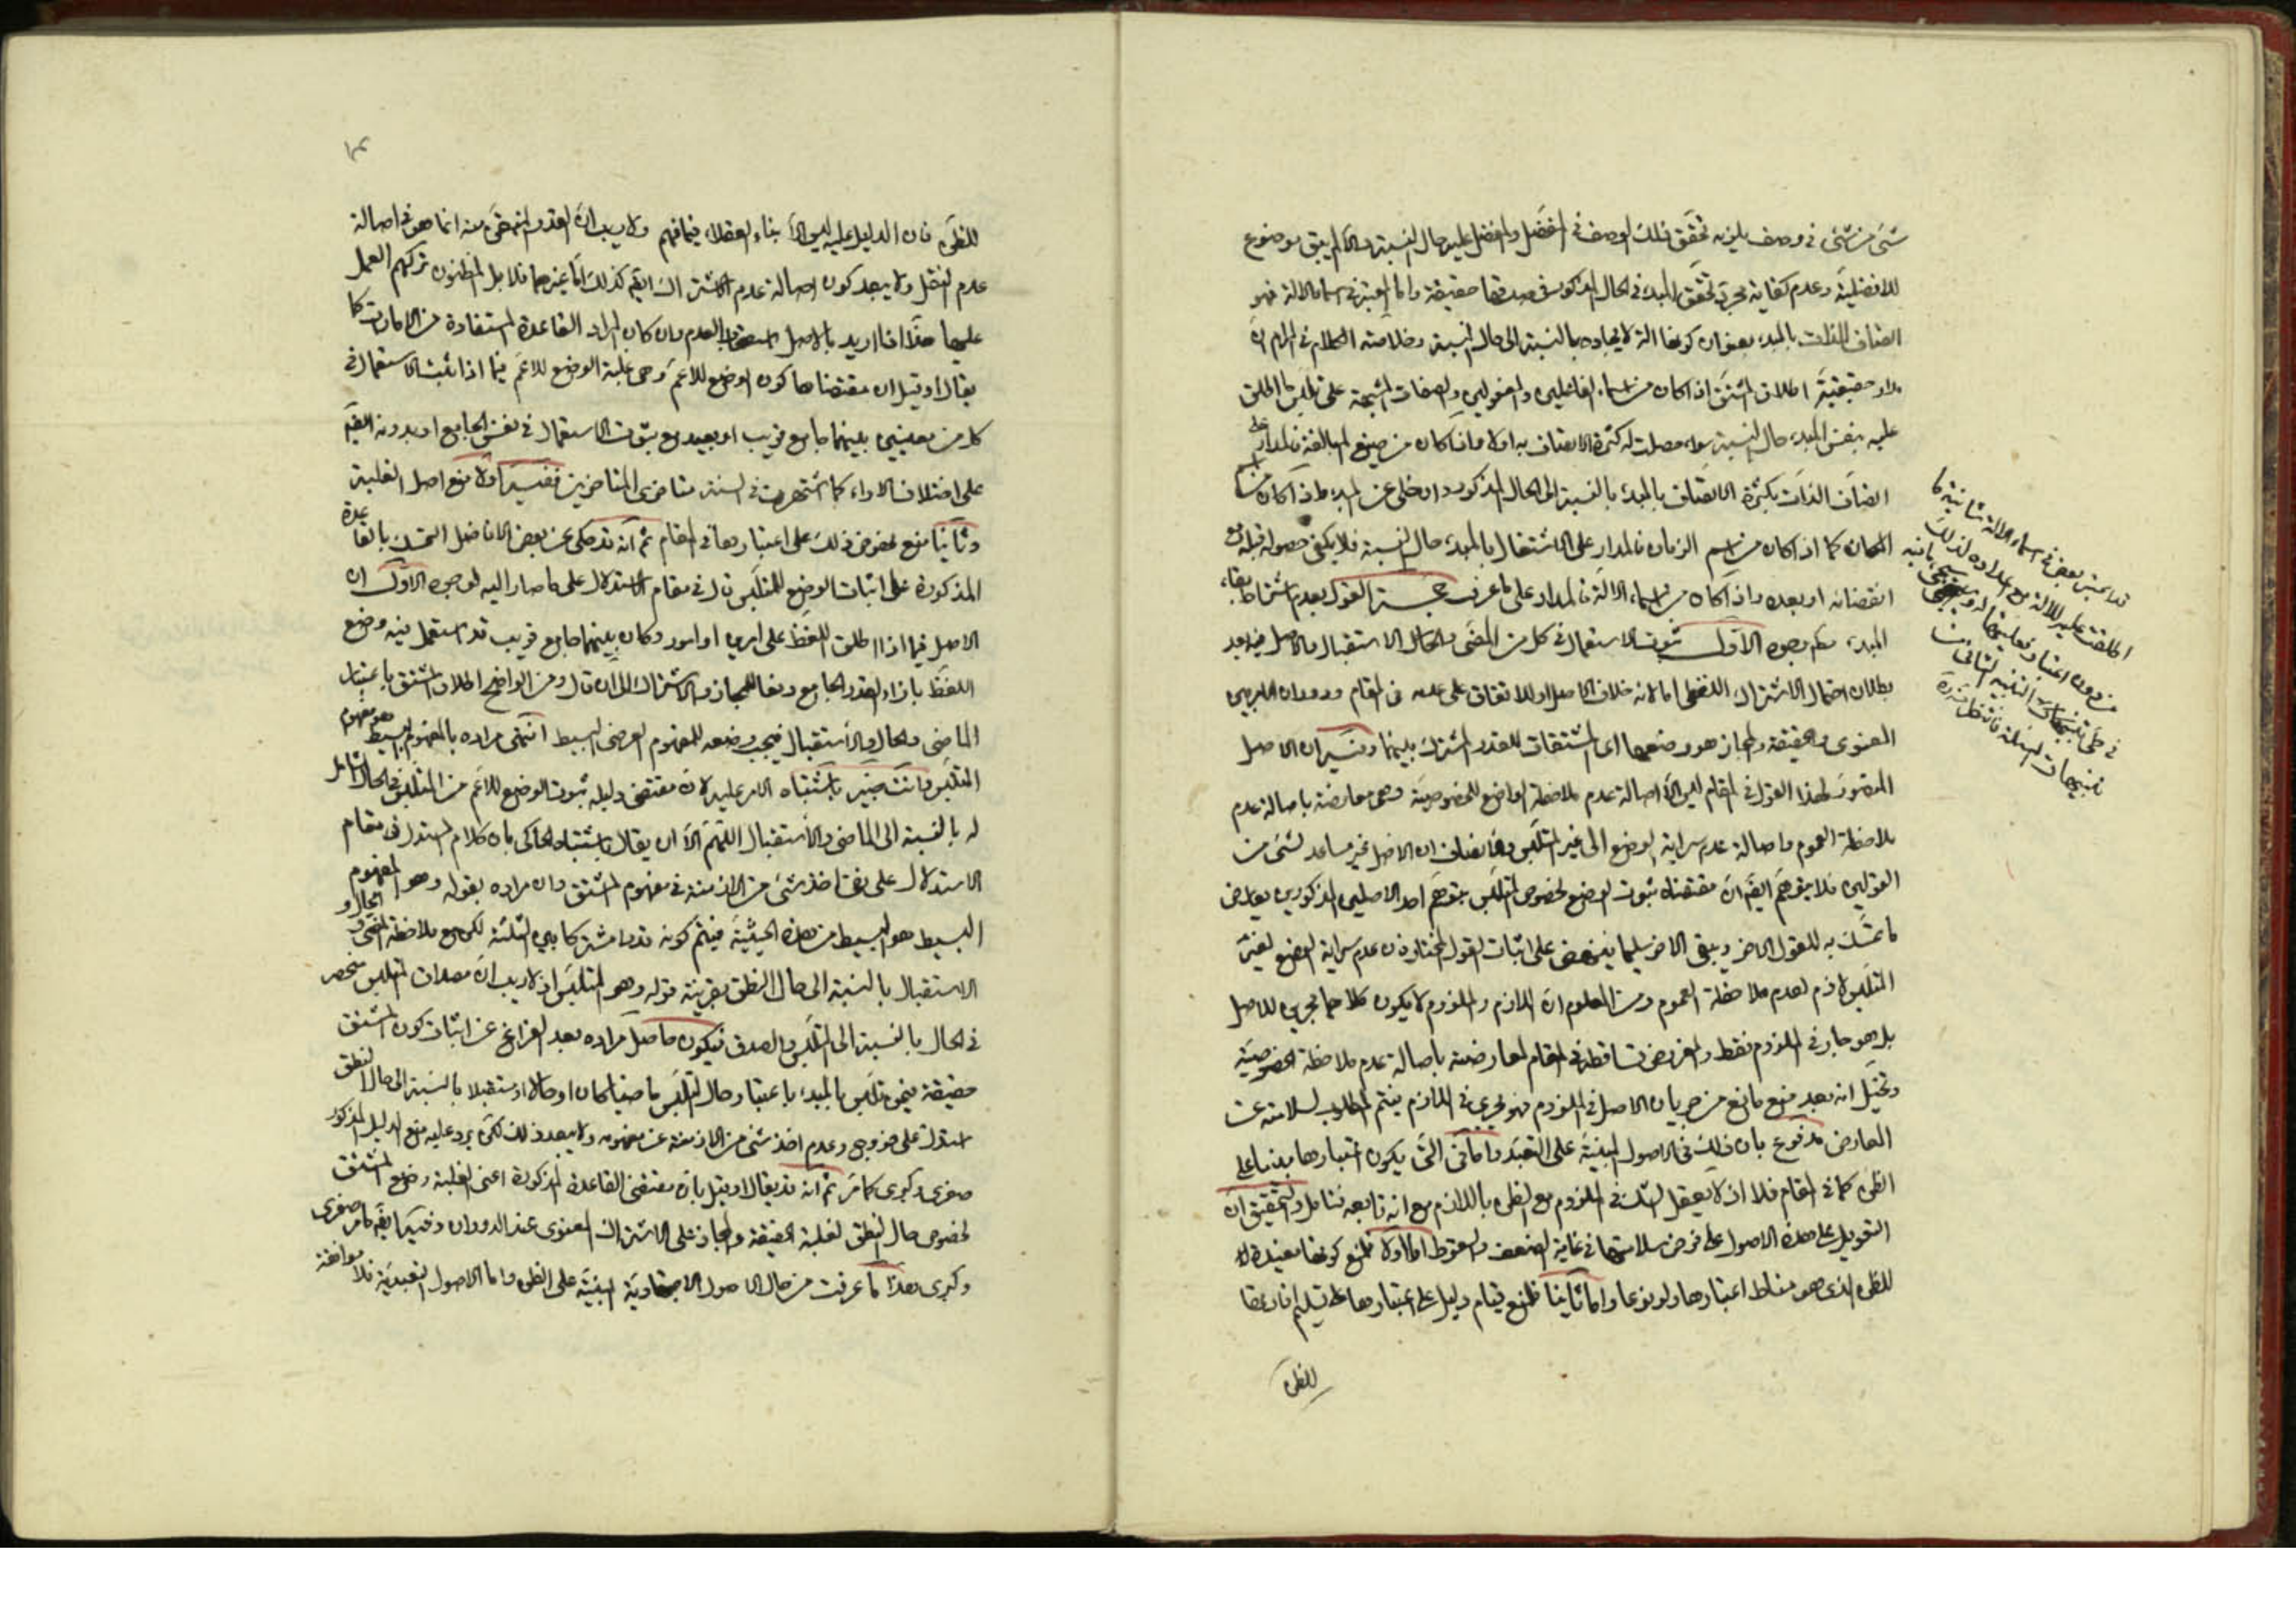 شئ من شئ في وصف يلزمه تحقق ذلك الوصف في المفضل والمفضل عليه حال النسبة والا لم يبق موضوع
للافضلية وعدم كفاية مجرد تحقق المبدء في الحال المذكور في صدقها حقيقة واما المعتبر في اسماء الالة فهو
اتصاف الذات بالمبدء بعنوان كونها الة لايجاده بالنسبة الى حال النسبة وخلاصة الكلام في المرام ان
مدار حقيقية اطلاق المشتق اذا كان من اسماء الفاعلين والمفعولين والصفات المشبهة على تلبس ما اطلق
عليه بنفس المبدء حال النسبة سواء حصلت له كثرة الاتصاف به اولا واذا كان من صيغ المبالغة فالمدار على
اتصاف الذات بكثرة الاتصاف بالمبدء بالنسبة الى الحال المذكور وان خلى عن المبدء واذا كان من اسماء
المكان كما اذا كان من اسم الزمان فالمدار على الاشتغال بالمبدء حال النسبة فلا يكفي حصوله قبله مع
انقضائه او بعده واذا كان من اسماء الالة فالمدار على ما عرفت حجة القول بعدم اشتراط بقاء
المبدء مطم وجوه الاول ثبوت الاستعمال في كل من المضى والحال والاستقبال والاصل فيه بعد
بطلان احتمال الاشتراك اللفظي اما لانه خلاف الاصل او للاتفاق على عدمه في المقام ودوران الامر بين
المعنوى والحقيقة والمجاز هو وضعها اى المشتقات للقدر المشترك بينهما وفيه ان الاصل
المتصور لهذا القول في المقام ليس الا اصالة عدم ملاحظة الواضع للخصوصية وهى معارضة باصالة عدم
ملاحظة العموم واصالة عدم سراية الوضع الى غير المتلبس وقد يضاف ان الاصل غير مساعد لشئ من
القولين فلا يتوهم ايضا ان مقتضاه ثبوت الوضع لخصوص المتلبس بتوهم احد الاصلين المذكورين يعارض
ما تمسك به للقول الاخر ويبقى الاخر سليما ينهض على اثبات القول المختار فان عدم سراية الوضع لغير
المتلبس لازم لعدم ملاحظة العموم ومن المعلوم ان اللازم والملزوم لا يكون كلاهما مجرى للاصل
بل هو جار في الملزوم فقط والمفروض تساقطه في المقام لمعارضته باصالة عدم ملاحظة الخصوصية
وتخيل انه بعد منع مانع من جريان الاصل في الملزوم فهو يجرى في اللازم فيتم المطلوب لسلامته عن
المعارض مدفوع بان ذلك في الاصول المبنية على التعبد واما في التى يكون اعتبارها مبنيا على
الظن كما في المقام فلا اذ لا يعقل الشك في الملزوم مع الظن باللازم مع انه تابعه فتامل والتحقيق ان
التعويل على هذه الاصول على فرض سلامتها في غاية الضعف والسقوط اما اولا فلمنع كونها مفيدة
للظن الذى هو مناط اعتبارها ولو نوعا واما ثانيا فلمنع قيام دليل على اعتبارها على تسليم افادتها
للظن
قد اعتبر بعض في اسماء الالة شانية ما
اطلقت عليه للالة مع اعداده لذلك
من دون اعتبار فعليتها له وسيجئ ما فيه
في طى تنبيهات التنبيه الثاني من
تنبيهات المسئلة فانتظر
للظن فان الدليل عليه ليس الا بناء العقلاء فيما فهم ولا ريب ان القدر المتحقق منه انما هو في اصالة
عدم النقل ولا يبعد كون اصالة عدم الاشتراك ايضا كذلك اما غيرهما فلا بل المظنون تركهم العمل
عليها هذا اذا اريد بالاصل استصحاب العدم وان كان المراد القاعدة المستفادة من الامارت كما
يقال او قيل ان مقتضاها كون الوضع للاعم وهى غلبة الوضع للاعم فيما اذا ثبت الاستعمال في
كل من معنيين بينهما جامع قريب او بعيد مع ثبوت الاستعمال في نفس الجامع او بدونه ايضا
على اختلاف الاراء كما اشتهرت في السنة متاخرى المتاخرين ففيه اولا منع اصل الغلبة
وثانيا منع نهوض ذلك على اعتبارها في المقام ثم انه قد حكى عن بعض الافاضل التمسك بالقاعدة
المذكورة على اثبات الوضع للمتلبس قال في مقام الاستدلال على ما صار اليه لوجوه الاول ان
الاصل فيما اذا اطلق اللفظ على امرين او امور وكان بينهما جامع قريب قد استعمل فيه وضع
اللفظ بازاء القدر الجامع دفعا للمجاز والاشتراك الى ان قال ومن الواضح اطلاق المشتق باعتبار
الماضى والحال والاستقبال فيجب وضعه للمفهوم العرضى البسيط انتهى مراده بالمفهوم البسيط هو مفهوم
المتلبس وانت خبير باشتباه الامر عليه لان مقتضى دليله ثبوت الوضع للاعم من المتلبس في الحال الشامل
له بالنسبة الى الماضى والاستقبال اللهم الا ان يقال باشتباه الحاكى بان كلام المستدل في مقام
الاستدلال على نفى اخذ شئ من الازمنة في مفهوم المشتق وان مراده بقوله وهو المفهوم
البسيط هو البسيط من هذه الحيثية فيتم كونه قدرا مشتركا بين الثلثة لكن مع ملاحظة المضى والحال و
الاستقبال بالنسبة الى حال النطق بقرينة قوله وهو المتلبس اذ لا ريب ان مصداق المتلبس منحصر
في الحال بالنسبة الى التلبس والصدق فيكون حاصل مراده بعد الفراغ عن اثبات كون المشتق
حقيقة فيمن تلبس بالمبدء باعتبار حال التلبس ماضيا كان او حالا او مستقبلا بالنسبة الى حال النطق
استدل على خروج وعدم اخذ شئ من الازمنة عن مفهومه ولا يبعد ذلك لكن يرد عليه منع الدليل المذكور
صغرى وكبرى كما مر ثم انه قد يقال او قيل بان مقتضى القاعدة المذكورة اعنى الغلبة وضع المشتق
لخصوص حال النطق لغلبة الحقيقة والمجاز على الاشتراك المعنوى عند الدوران وفيه ايضا ما مر صغرى
وكبرى هذا ما عرفت من حال الاصول الاجتهادية المبنية على الظن واما الاصول التعبدية فلا موافقة